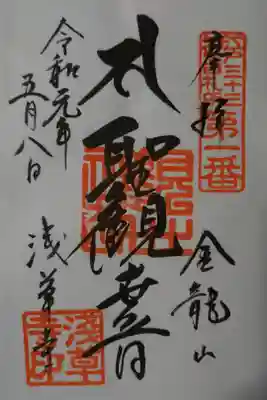 奉拝
第一番
金龍山
聖観世音
令和元年
五月八日
浅草寺
浅草寺印